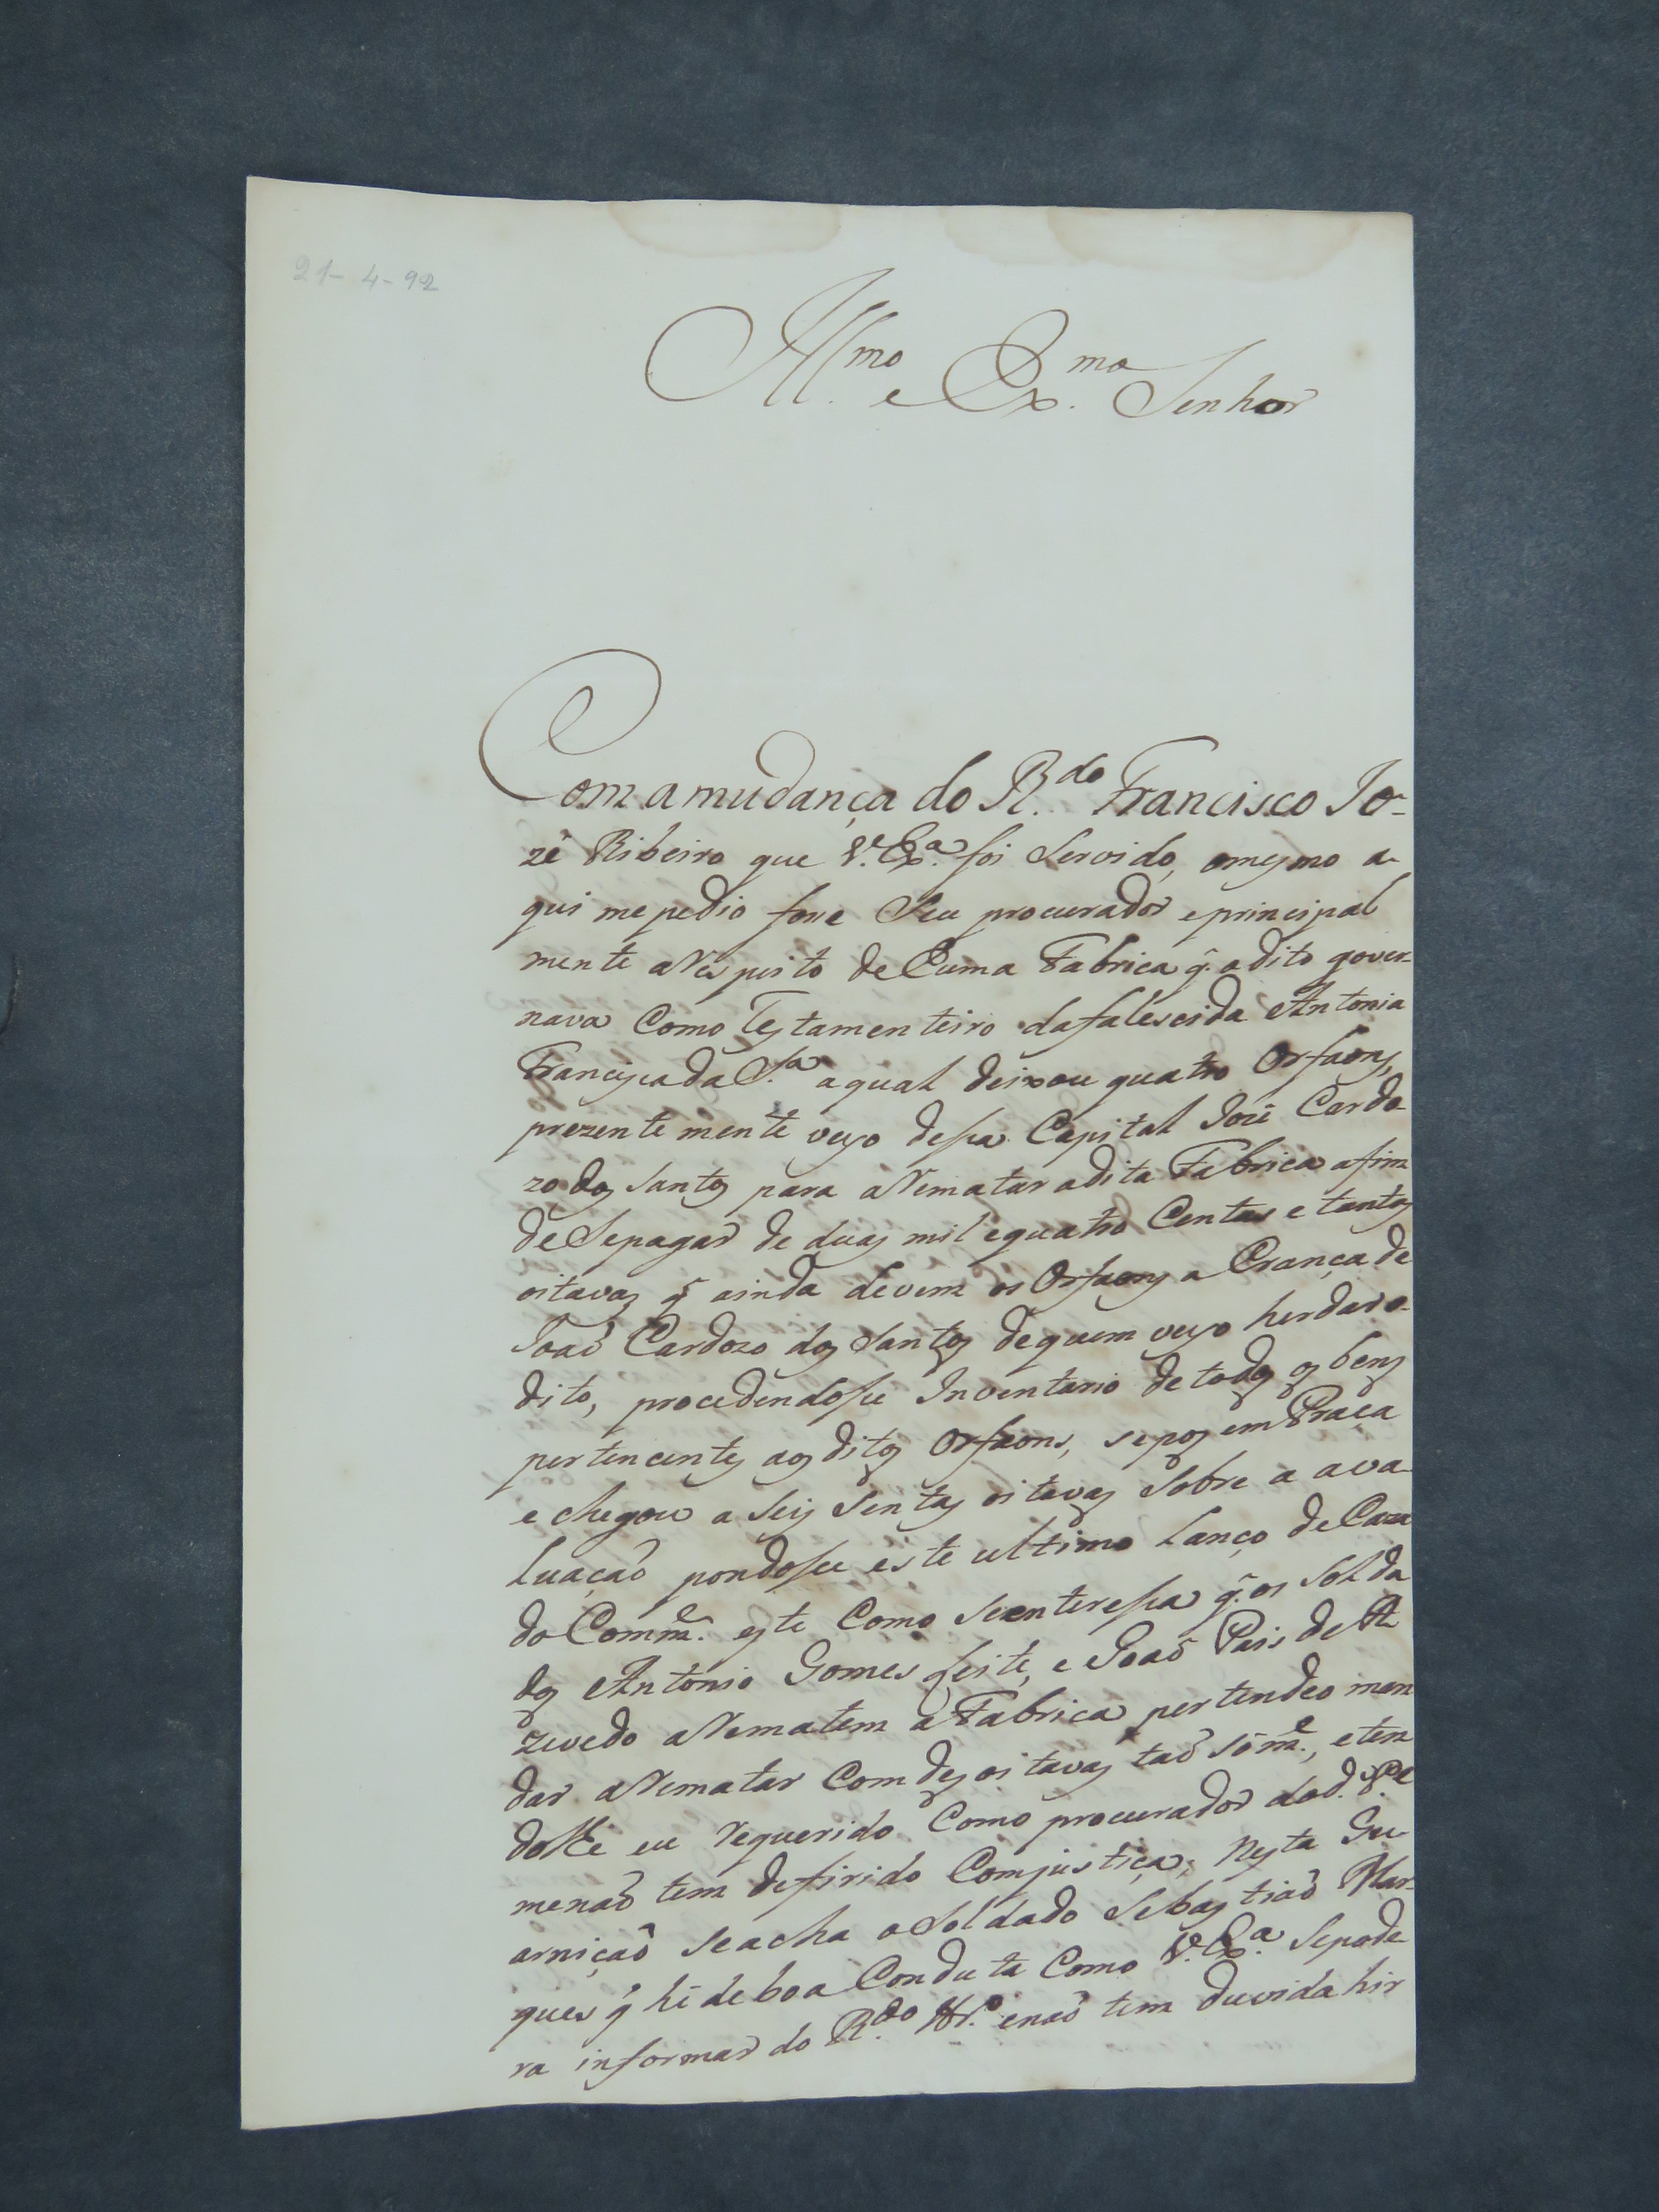 21-4-92
Illmo. e Exmo. Senhor
Com a mudança do R.do Francisco Jo-
zê Ribeiro que V. Exa. foi Servido, omesmo a-
qui mepedio fose Seu procurador eprincipal
mente aRespeito de huma Fabrica q̃. odito gover-
nava Como Testamenteiro dafalescida Antonia
Franciscada S.a aqual deixou quatro Orfaons,
prezentemente veyo dessa Capital Jozê Cardo
zo dos Santos para aRematar adita Fabrica afim
deSepagar de duas mil equatro Centas e tantas
oitavas q̃ ainda devem os Orfaons a Erança de
Joaõ Cardozo dos Santos dequem veyo herdar o-
dito, procedendosse Inventario detodos os bens
pertencentes aos ditos Orfaons, sepos emPraça
e chegou a Seis Sentas oitavas Sobre a ava-
luaçaõ pondosse este ultimo Lanço deCaza
do Comm.e este Como seenteressa q̃. os Solda
dos Antonio Gomes leite, e Joaõ Pais de A
zevedo aRematem aFabrica pertendeo man
dar aRematar Com des oitavas taõ sóm.e, eten
dolhe eu Requerido Como procurador dod. P.e
menaõ tem defirido Comjustiça; Nesta Gu
arniçaõ seacha oSoldado Sebastiaõ Mar-
ques q̃ hé deboa Conduta Como V. Exa. Sepode
ra informar do R.do Vr.o enaõ tem duvida hir